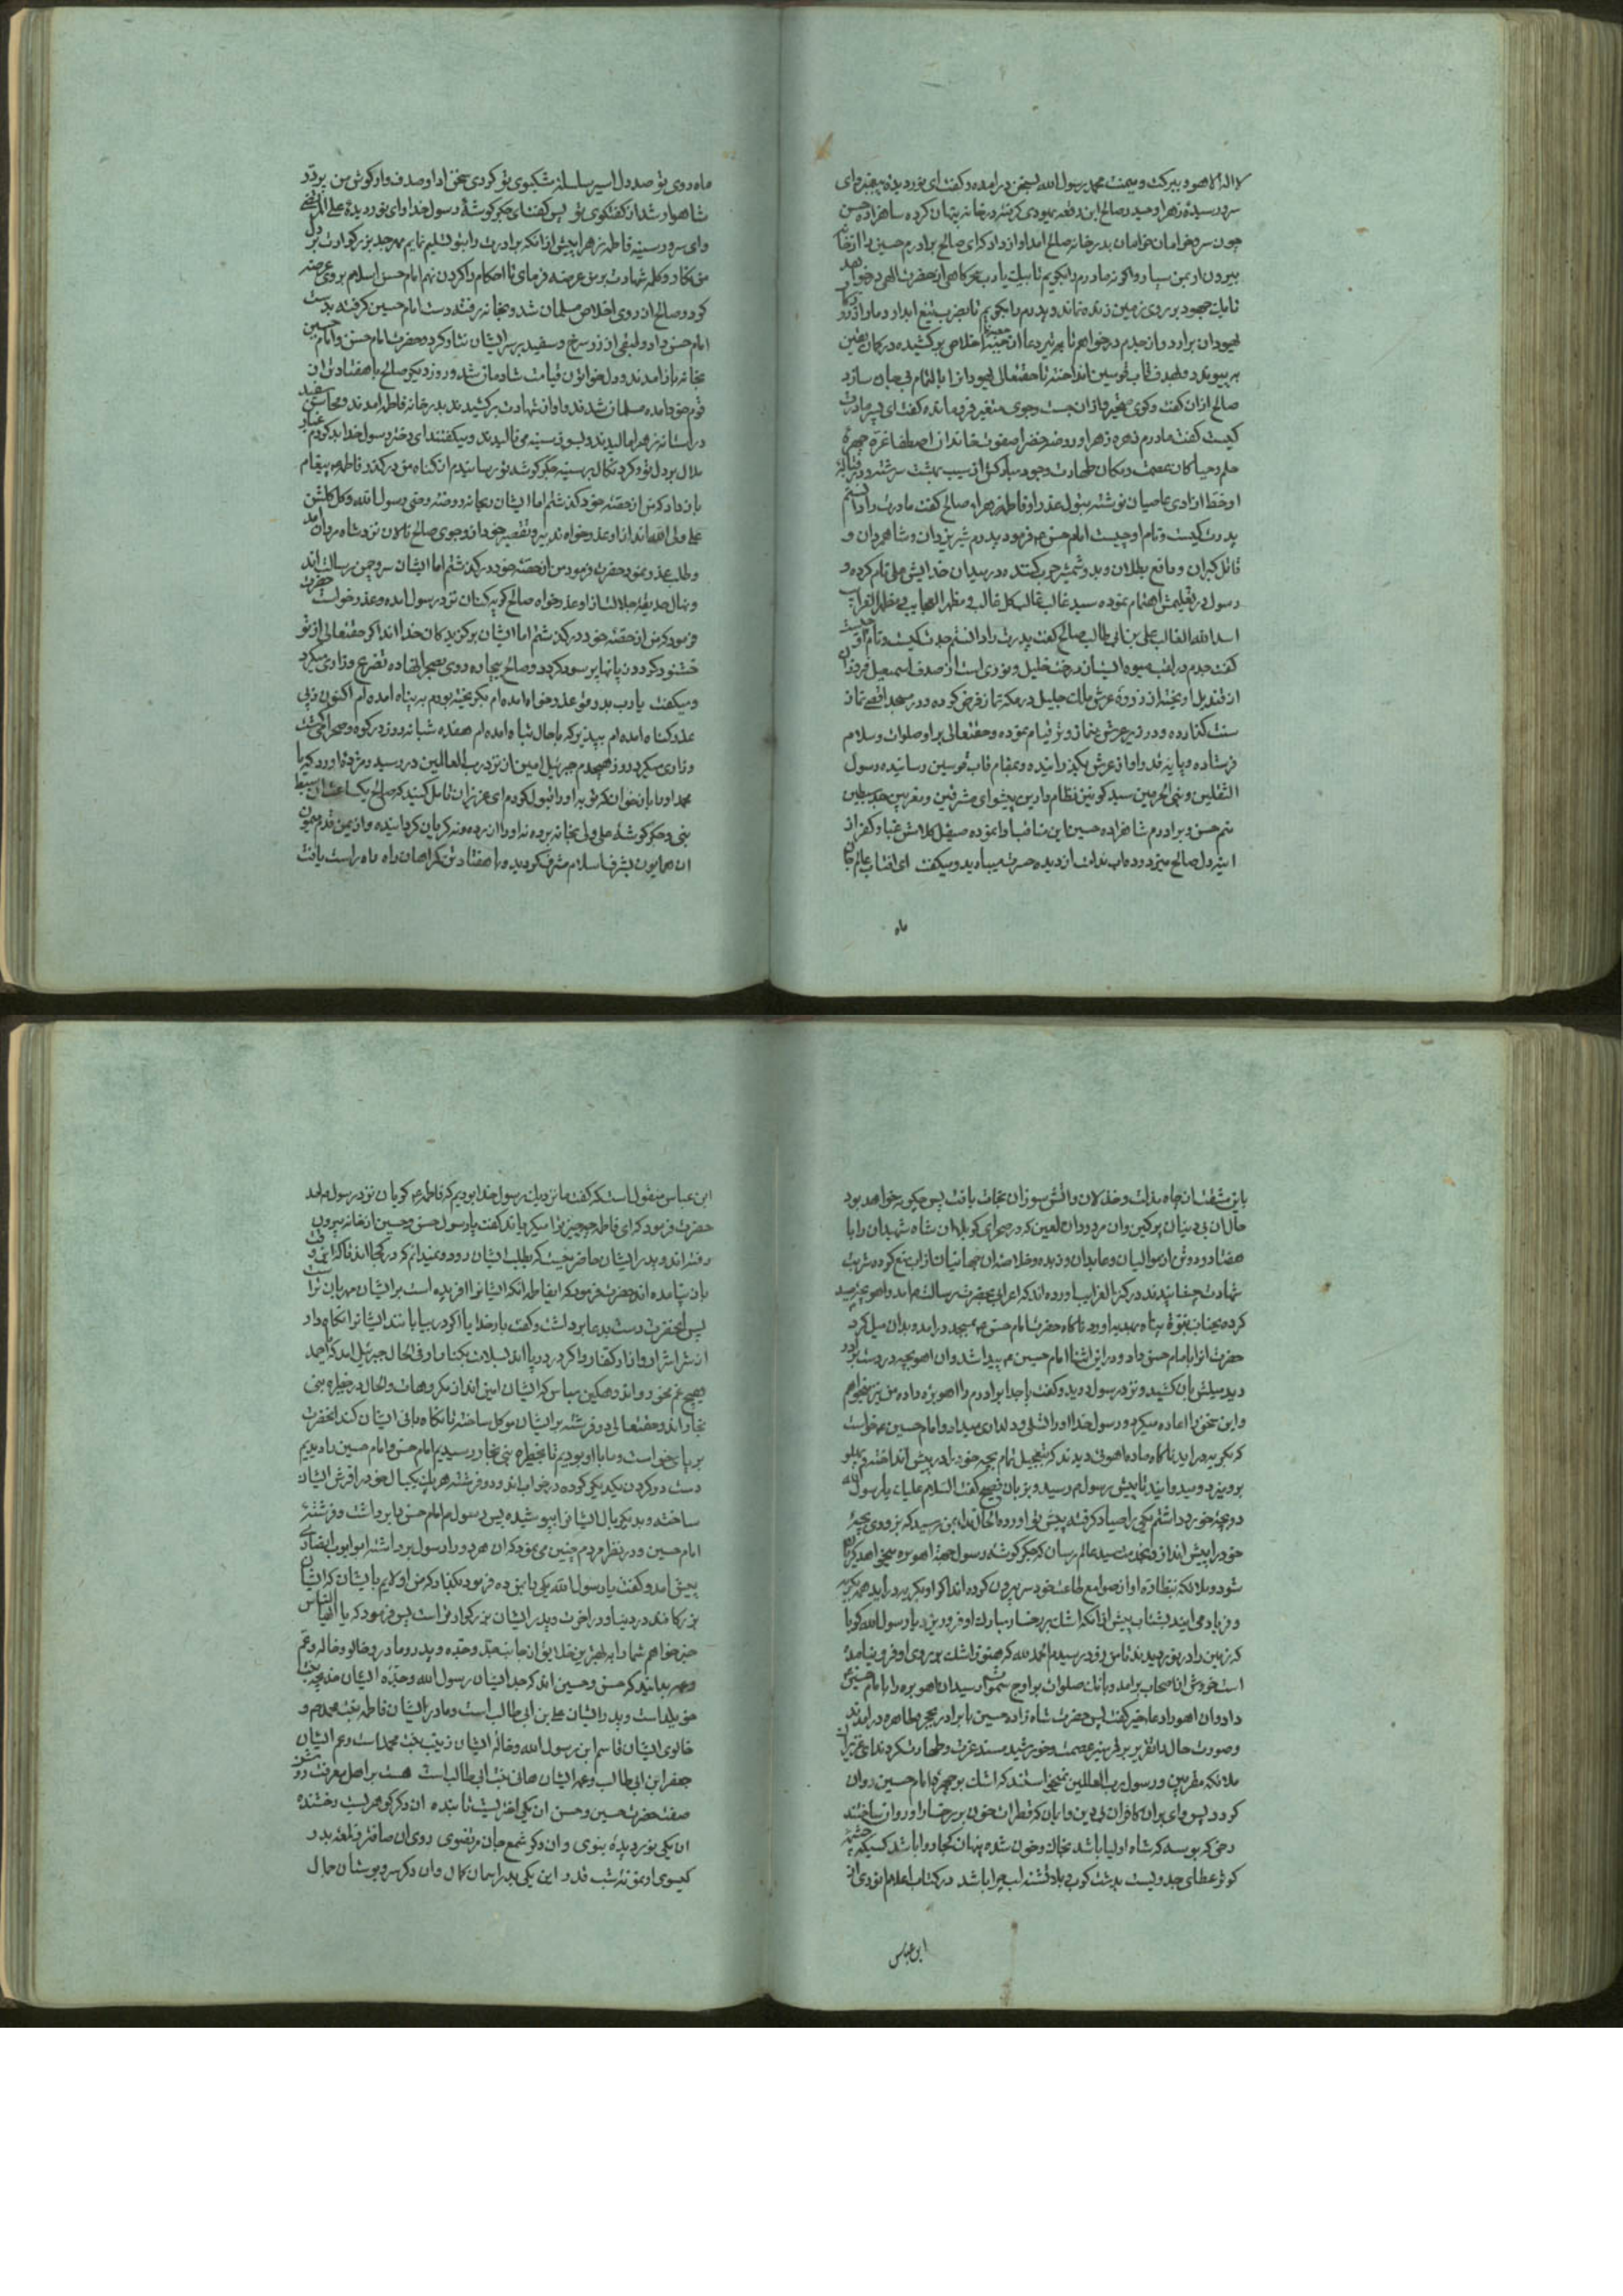 لا اله الا هو و ببرکت و میمنت محمد رسول الله بسخن درامده و کفت ای نور دیده پیغمبر و ای
سرور سینه زهرا و حیدر صالح ابن رقعه یهودی کرفته در خانه پنهان کرده شاهزاده حسن
چون سرو خرامان خرامان بدر خانه صالح امد و اواز داد که ای صالح برادرم حسین را از خانه
بیرون ار بمن سپار و اکر نه مادرم را بکویم تا بیک یارب سحرکاهی از حضرت الهی در خواهد
تا یک جهود بر روی زمین زنده نماند و پدرم را بکویم تا بضرب تیغ ابدار دمار از روزکار
یهودان برارد و از جدم در خواهم تا تیر دعا از جعبه اخلاص بر کشیده در کمان یقین
به پیوندد و بهدف قاب قوسین انداخته تا حقتعالی یهودانرا بالتمام بی جان سازد
صالح ازان کفت و کوی متحیر و ازان جست و جوی متغیر فرو مانده کفت ای پسر مادرت
کیست کفت مادرم زهره زهرا و روضه خضرا صفوت خاندان اصطفا غره چهره
حلم و حیا کان عصمت و مکان طهارت وجود مبارکش از سیب بهشت سرشته و در قباله
او خط ازادی عاصیان نوشته بتول عذرا و فاطمه زهرا صالح کفت مادرت را دانستم
پدرت کیست و نام او چیست امام حسن فرمود پدرم شیر یزدان و شاه مردان و
قاتل کبران و دافع بطلان و بدو شمشیر حرب کننده در میدان خدایش علی نام کرده و
رسول در تعلیمش اهتمام نموده سید غالب مطلوب کل طالب مظهر العجایب و مظهر الغرایب
اسد الله الغالب علی بن ابی طالب صالح کفت پدرت را دانستم جدت کیست و نام او چیست
کفت جدم میوه ایست از درخت خلیل و نوری است از صدف اسمعیل فروزان
از قندیل اویخته از ذروه عرش ملک جلیل در مکه نماز فرض کرده و در مسجد اقصی نماز
سنت کذارده و در زیر عرش نماز وتر قیام نموده و حقتعالی بر او صلوات و سلام
فرستاده و پایه قد او از عرش بکذرانیده و بمقام قاب قوسین رسانیده رسول
الثقلین و نبی الحرمین سید کونین نظام دارین پیشوای مشرقین و مغربین جد سبطین
منم حسن و برادرم شاهزاده حسین این مناقب ادا نموده صیقل کلامش غبار کفر از
اینه دل صالح میزدود و اب ندامت از دیده حسرت میبارید و میکفت ای افتاب عالم
ماه
ماه روی تو صد دل اسیر سلسله مشکبوی تو کردی سخن ادا و صدف وار کوش من پر در
شاهوار شد از کفتکوی تو پس کفت ای جکر کوشه رسول خدا و ای نور دیده علی المرتضی
و ای سرور سینه فاطمه زهرا پیش ازانکه برادرت را بتو تسلیم نمایم مهر جد بزرکوارت بر دل
من بنکار و کلمه شهادت بر من عرضه فرمای تا احکام را کردن نهم امام حسن اسلام بروی عرضه
کرد و صالح از روی اخلاص مسلمان شد و بخانه رفته دست امام حسین کرفته بدست
امام حسن داد و طبقی از زر سرخ و سفید بر سر ایشان نثار کرد و حضرت امام حسن و امام حسین
بخانه باز امدند و دل خواتون قیامت شادمان شد و روز دیکر صالح با هفتاد تن از
قوم خود امده مسلمان شدند و اواز شهادت بر کشیدند بدر خانه فاطمه امدند و محاسن سفید
در استانه زهرا مالیدند و بسوز سینه می نالیدند و میکفتند ای دختر رسول خدا بد کردم غبار
ملال بر دل تو و کرد نکال بر سینه جکر کوشه تو رسانیدم ازکناه من درکذر فاطمه پیغام
باز داد که من از حصه خود کذشتم اما ایشان ریحانه روضه وحی رسول الله و کل کلشن
علی ولی الله اند از او عذر خواه تدبیر تقصیر خود از وجوی صالح نالان نزد شاه مردان امد
و طلب عذر نمود حضرت فرمود من از حصه خود درکذشتم اما ایشان سرو چمن رسالت اند
و نهال حدیقه جلالت از او عذر خواه صالح کریه کنان نزد رسول امده و عذر خواست حضرت
فرمود که من از حصه خود درکذشتم اما ایشان برکزیدکان خدا اند اکر حقتعالی از تو
خشنود کردد زیانها بر سود کردد و صالح بیچاره روی بصحرا نهاده تضرع و زاری میکرد
و میکفت یا رب بدر تو عذر خواه امده ام بکریخته بودم به پناه امده ام اکنون زپی
عذر کناه امده ام بپذیر که با حال تباه امده ام هفده شبانه روز در کوه و صحرا میکشت
و زاری میکرد روز هیجدهم جبرئیل امین از نزد رب العالمین در رسید و مژده اورد که یا
محمد او را باز خوان که توبه او را قبول کردم ای عزیزان تامل کنید که صالح یکساعت ان سبط
نبی و جکر کوشه علی ولی بخانه برده نه او را ازرده و نه کریان کردانیده و از یمن قدم میمون
ان همایون بشرف اسلام مشرف کردیده و با هفتاد تن کمراهان راه راه راست یافت
باین شفقت از چاه مذلت و خذلان و اتش سوزان نجات یافت پس چکونه خواهد بود
حال ان بی دینان پر کین و ان مردودان لعین که در صحرای کربلا ان شاه شهیدان را با
هفتاد و دو تن از موالیان و عابدان و زبده و خلاصه ان جهانیان از اب منع کرده شربت
شهادت چشانیدند در کنز الغرایب اورده اند که اعرابی بحضرت رسالت امد و اهو بچه صید
کرده بجناب نبوت پناه بهدیه اورد ناکاه حضرت امام حسن بمسجد درامد و بدان میل کرد
حضرت انرا بامام حسن داد و در این اثنا امام حسین پیدا شد و ان اهو بچه در دست برادر
دید میلش بان کشید و نزد رسول دوید و کفت یا جدا برادرم را اهو بره داده من نیز میخواهم
و این سخن را اعاده میکرد و رسول خدا او را تسلی و دلداری میداد و امام حسین میخواست
که بکریه دراید ناکاه ماده اهوئی دیدند که بتعجیل تمام بچه خود را در پیش انداخته پهلو
برو میزد و میدوانید تا پیش رسول رسید و بزبان فصیح کفت السلام علیک یا رسول الله
دو بچه خورد داشتم یکی را صیاد کرفته پیش تو اورده الحال ندا بمن رسید که بزودی بچه
خود را پیش انداز و بخدمت سید عالم رسان که جکر کوشه رسول جهت اهو بره میخواهد کریان
شود و ملائکه بنظاره او از صوامع طاعت خود سر بیرون کرده اند اکر او بکریه دراید همه بکریه
و فریاد می ایند بشتاب پیش ازانکه اشک بر رخسار مبارک او فرو ریزد یا رسول الله کویا
که زمین را در نوردیدند تا من زود رسیدم الحمد لله که هنوز اشک بر روی او فرو نیامده
است خروش از اصحاب برامد و بانک صلوات بر اوج سموات رسید ان اهو بره را بامام حسین
داد و ان اهو را دعای خیر کفت پس حضرت شاه زاده حسین با برادر بحجره طاهره درامدند
و صورت حال را تقریر بر قمر منیر عصمت و خورشید مسند عزت و طهارت کردند ای عزیزان
ملائکه مقربین و رسول رب العالمین نمیخواستند که اشک بر چهره امام حسین روان
کردد پس وای بر ان کافران بی دین وایان که قطرات خون بر رخسار او روان ساختند
رخی که بوسه که شاه اولیا باشد بخاک و خون شده پنهان کجا روا باشد کسیکه چشمه
کوثر عطای جد ویست بدشت کرب و بلا تشنه لب چرا باشد در کتاب اعلام نوری از
ابن عباس
ابن عباس منقول است که کفت ما نزدیک رسول خدا بودیم که فاطمه کریان نزد رسول امد
حضرت فرمود که ای فاطمه چه چیز ترا میکریاند کفت یا رسول حسن و حسین از خانه بیرون
رفته اند و پدر ایشان حاضر نیست که بطلب ایشان رود و نمیدانم که در کجا اند تا که این وقت
باز نیامده اند حضرت فرمود که ایفاطمه انکه ایشانرا افریده است بر ایشان مهربان تر است
پس انحضرت دست بدعا برداشت و کفت بار خدایا اکر در بیابانند ایشانرا نکاه دار
از شر اشرار و ازار کفتار و اکر در دریا اند بسلامت بکنار ار فی الحال جبرئیل امد که احمد
هیچ غم مخور و اندوهکین مباش که ایشان ایمن اند از مکروهات و الحال در حظیره بنی
نجار اند و حقتعالی دو فرشته بر ایشان موکل ساخته تا نکاه بانی ایشان کند انحضرت
بر پای خواست و ما با او بودیم تا بحظیره بنی نجار رسیدیم امام حسن و امام حسین را دیدیم
دست در کردن یکدیکر کرده در خواب اند و دو فرشته هر یک یکبال خود را فرش ایشان
ساخته و بدیکر بال ایشانرا پوشیده پس رسول امام حسن را برداشت و فرشته
امام حسین و در نظر مردم چنین می نمود که ان هر دو را رسول برداشته ابو ایوب انصاری
پیش امد و کفت یا رسول الله یکی را بمن ده فرمود بکذار که من اولایم بایشان که ایشان
بزرکانند در دنیا و در اخرت و پدر ایشان بزرکوار تر است پس فرمود که یا ایها الناس
خبر خواهم شما را به بهترین خلایق از جانب جد و جده و پدر و مادر و خالو و خاله و عم
و عمه بدانید که حسن و حسین اند که جد ایشان رسول الله و جده ایشان خدیجه بنت
خویلد است و پدر ایشان علی بن ابی طالب است و مادر ایشان فاطمه بنت محمد و
خالوی ایشان قاسم ابن رسول الله و خاله ایشان زینب بنت محمد است و عم ایشان
جعفر ابن ابی طالب و عمه ایشان هانی بنت ابی طالب است هست بر اهل معرفت روشن
صفت حضرت حسین و حسن ان یکی اختریست تابنده ان دکر کوهریست رخشنده
ان یکی نور دیده نبوی و ان دکر شمع جان مرتضوی روی ان صاف تر ز لمعه بدر
کیسوی او نمونه شب قدر این یکی بدر اسمان کمال وان دکر سرو بوستان جمال